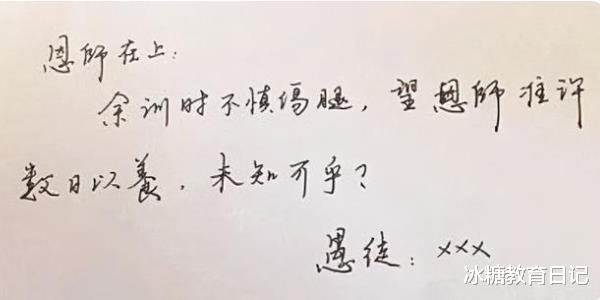 恩師在上：
余训时不慎伤腿，望恩師准许
数日以養，未知可乎？
愚徒：xxx
冰糖教育日记